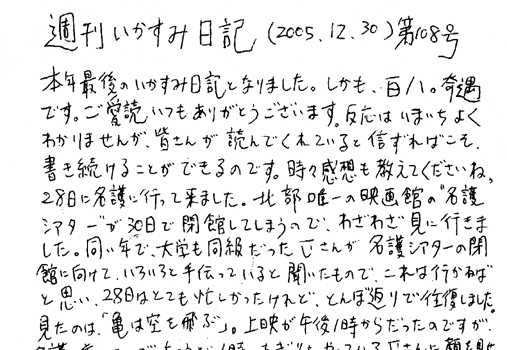 週刊いかすみ日記 (2005.12.30) 第108号
本年最後のいかすみ日記となりました。しかも、百八。奇遇
です。ご愛読いつもありがとうございます。反応はいまいちよく
わかりませんが、皆さんが読んでくれていると信ずればこそ、
書き続けることができるのです。時々感想も教えてくださいね。
28日に名護に行って来ました。北部唯一の映画館の"名護
シアター"が30日で閉館してしまうので、わざわざ見に行きま
した。同い年で、大学も同級だったUさんが名護シアターの閉
館に向けて、いろいろと手伝っていると聞いたもので、これは行かねば
と思い、28日はとても忙しかったけれど、とんぼ返りで往復しました。
見たのは、「亀は空を飛ぶ」。上映が午後1時からだったのですが、